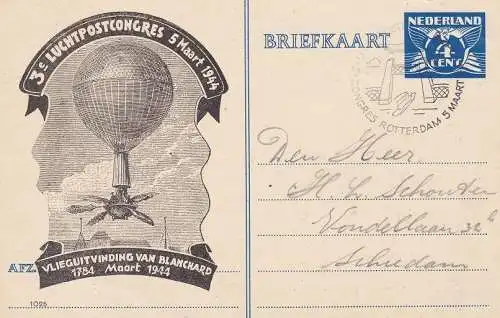 3e LUCHTPOSTCONGRES 5 Maart 1944
VLIEGUITVINDING VAN BLANCHARD
1784 Maart 1944
AFZ.
1025
BRIEFKAART
NEDERLAND
4
CENT
CONGRES ROTTERDAM 5 MAART
Den Heer
H L Schouten
Vondellaan 32b
Schiedam